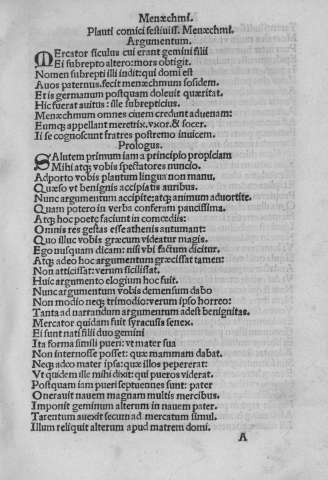 Menæchmi.
Plauti comici festiuiss. Menæchmi.
Argumentum.
MErcator siculus cui erant gemini filii
Ei subrepto altero: mors obtigit.
Nomen subrepti illi indit: qui domi est
Auos paternus. fecit menæchmum sosidem.
Et is germanum postquam doleuit quæritat.
Hic fuerat auitus: ille subrepticius.
Menæchmum omnes ciuem credunt aduenam:
Eumqꝫ appellant meretrix. vxor. & socer.
Ii se cognoscunt fratres postremo inuicem.
Prologus.
SAlutem primum iam a principio propiciam
Mihi atqꝫ vobis spectatores nuncio.
Adporto vobis plantum lingua non manu,
Quæso vt benignis accipiatis auribus.
Nunc argumentum accipite: atqꝫ animum aduortite.
Quam potero in verba conferam paucissima.
Atqꝫ hoc poetę faciunt in comœdiis:
Omnis res gestas esse athenis autumant:
Quo illuc vobis græcum videatur magis.
Ego nusquam dicam: nisi vbi factum dicitur.
Atqꝫ adeo hoc argumentum græcissat tamen:
Non atticissat: verum sicilissat.
Huic argumento elogium hoc fuit.
Nunc argumentum vobis demensum dabo
Non modio neqꝫ trimodio: verum ipso horreo:
Tanta ad narrandum argumentum adest benignitas.
Mercator quidam fuit syracusis senex.
Ei sunt nati filii duo gemini
Ita forma simili pueri: vt mater sua
Non internosse posset: quæ mammam dabat.
Neqꝫ adeo mater ipsa: quæ illos pepererat:
Vt quidem ille mihi dixit: qui pueros viderat.
Postquam iam pueri septuennes sunt: pater
Onerauit nauem magnam multis mercibus.
Imponit geminum alterum in nauem pater.
Tarentum auexit secum ad mercatum simul.
Illum reliquit alterum apud matrem domi.
A